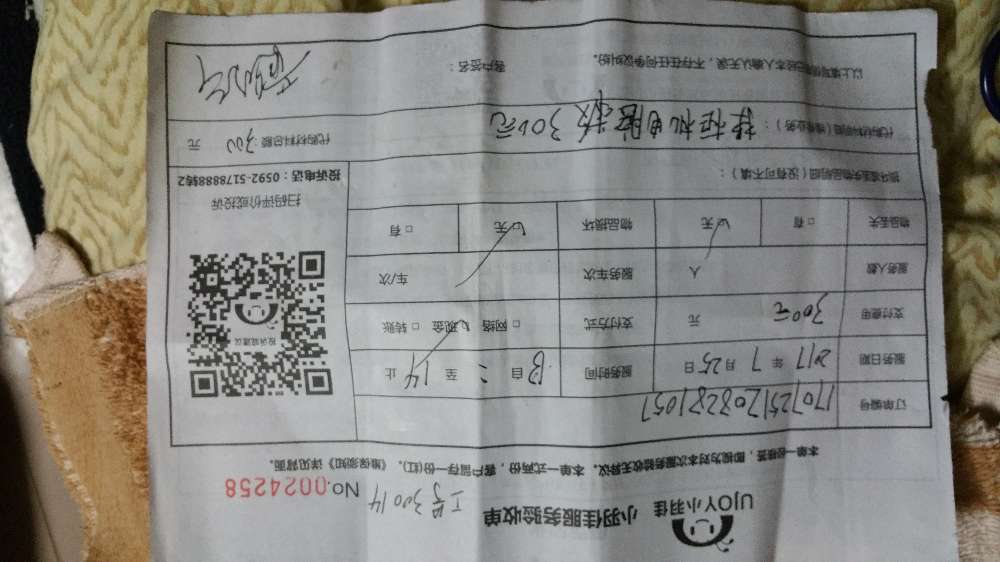 UJOY小羽佳 小羽佳服务验收单 工号30014 No.0024258
本单一经核签，即视为对本次服务验收无异议。本单一式两份，客户留存一份(红)。《维保须知》详见背面。
订单编号 170725120828/057
服务日期 2017 年 7 月 25 日 服务时间 13 自 至 14 止
支付费用 300元 元 支付方式 □ 网络 ☑ 现金 □ 转账
服务人数 人 服务车次 车/次
物品丢失 □ 有 ☑ 无 物品损坏 ☑ 无 □ 有
投诉或建议
扫码评价或投诉
投诉电话：0592-5178888转2
损坏或丢失物品明细（没有可不填）：
代购材料明细（维修业务）： 挂柜机电脑板300元 代购材料总额:300 元
以上填写情况已经本人确认无误，不存在任何争议纠纷。 客户签名：